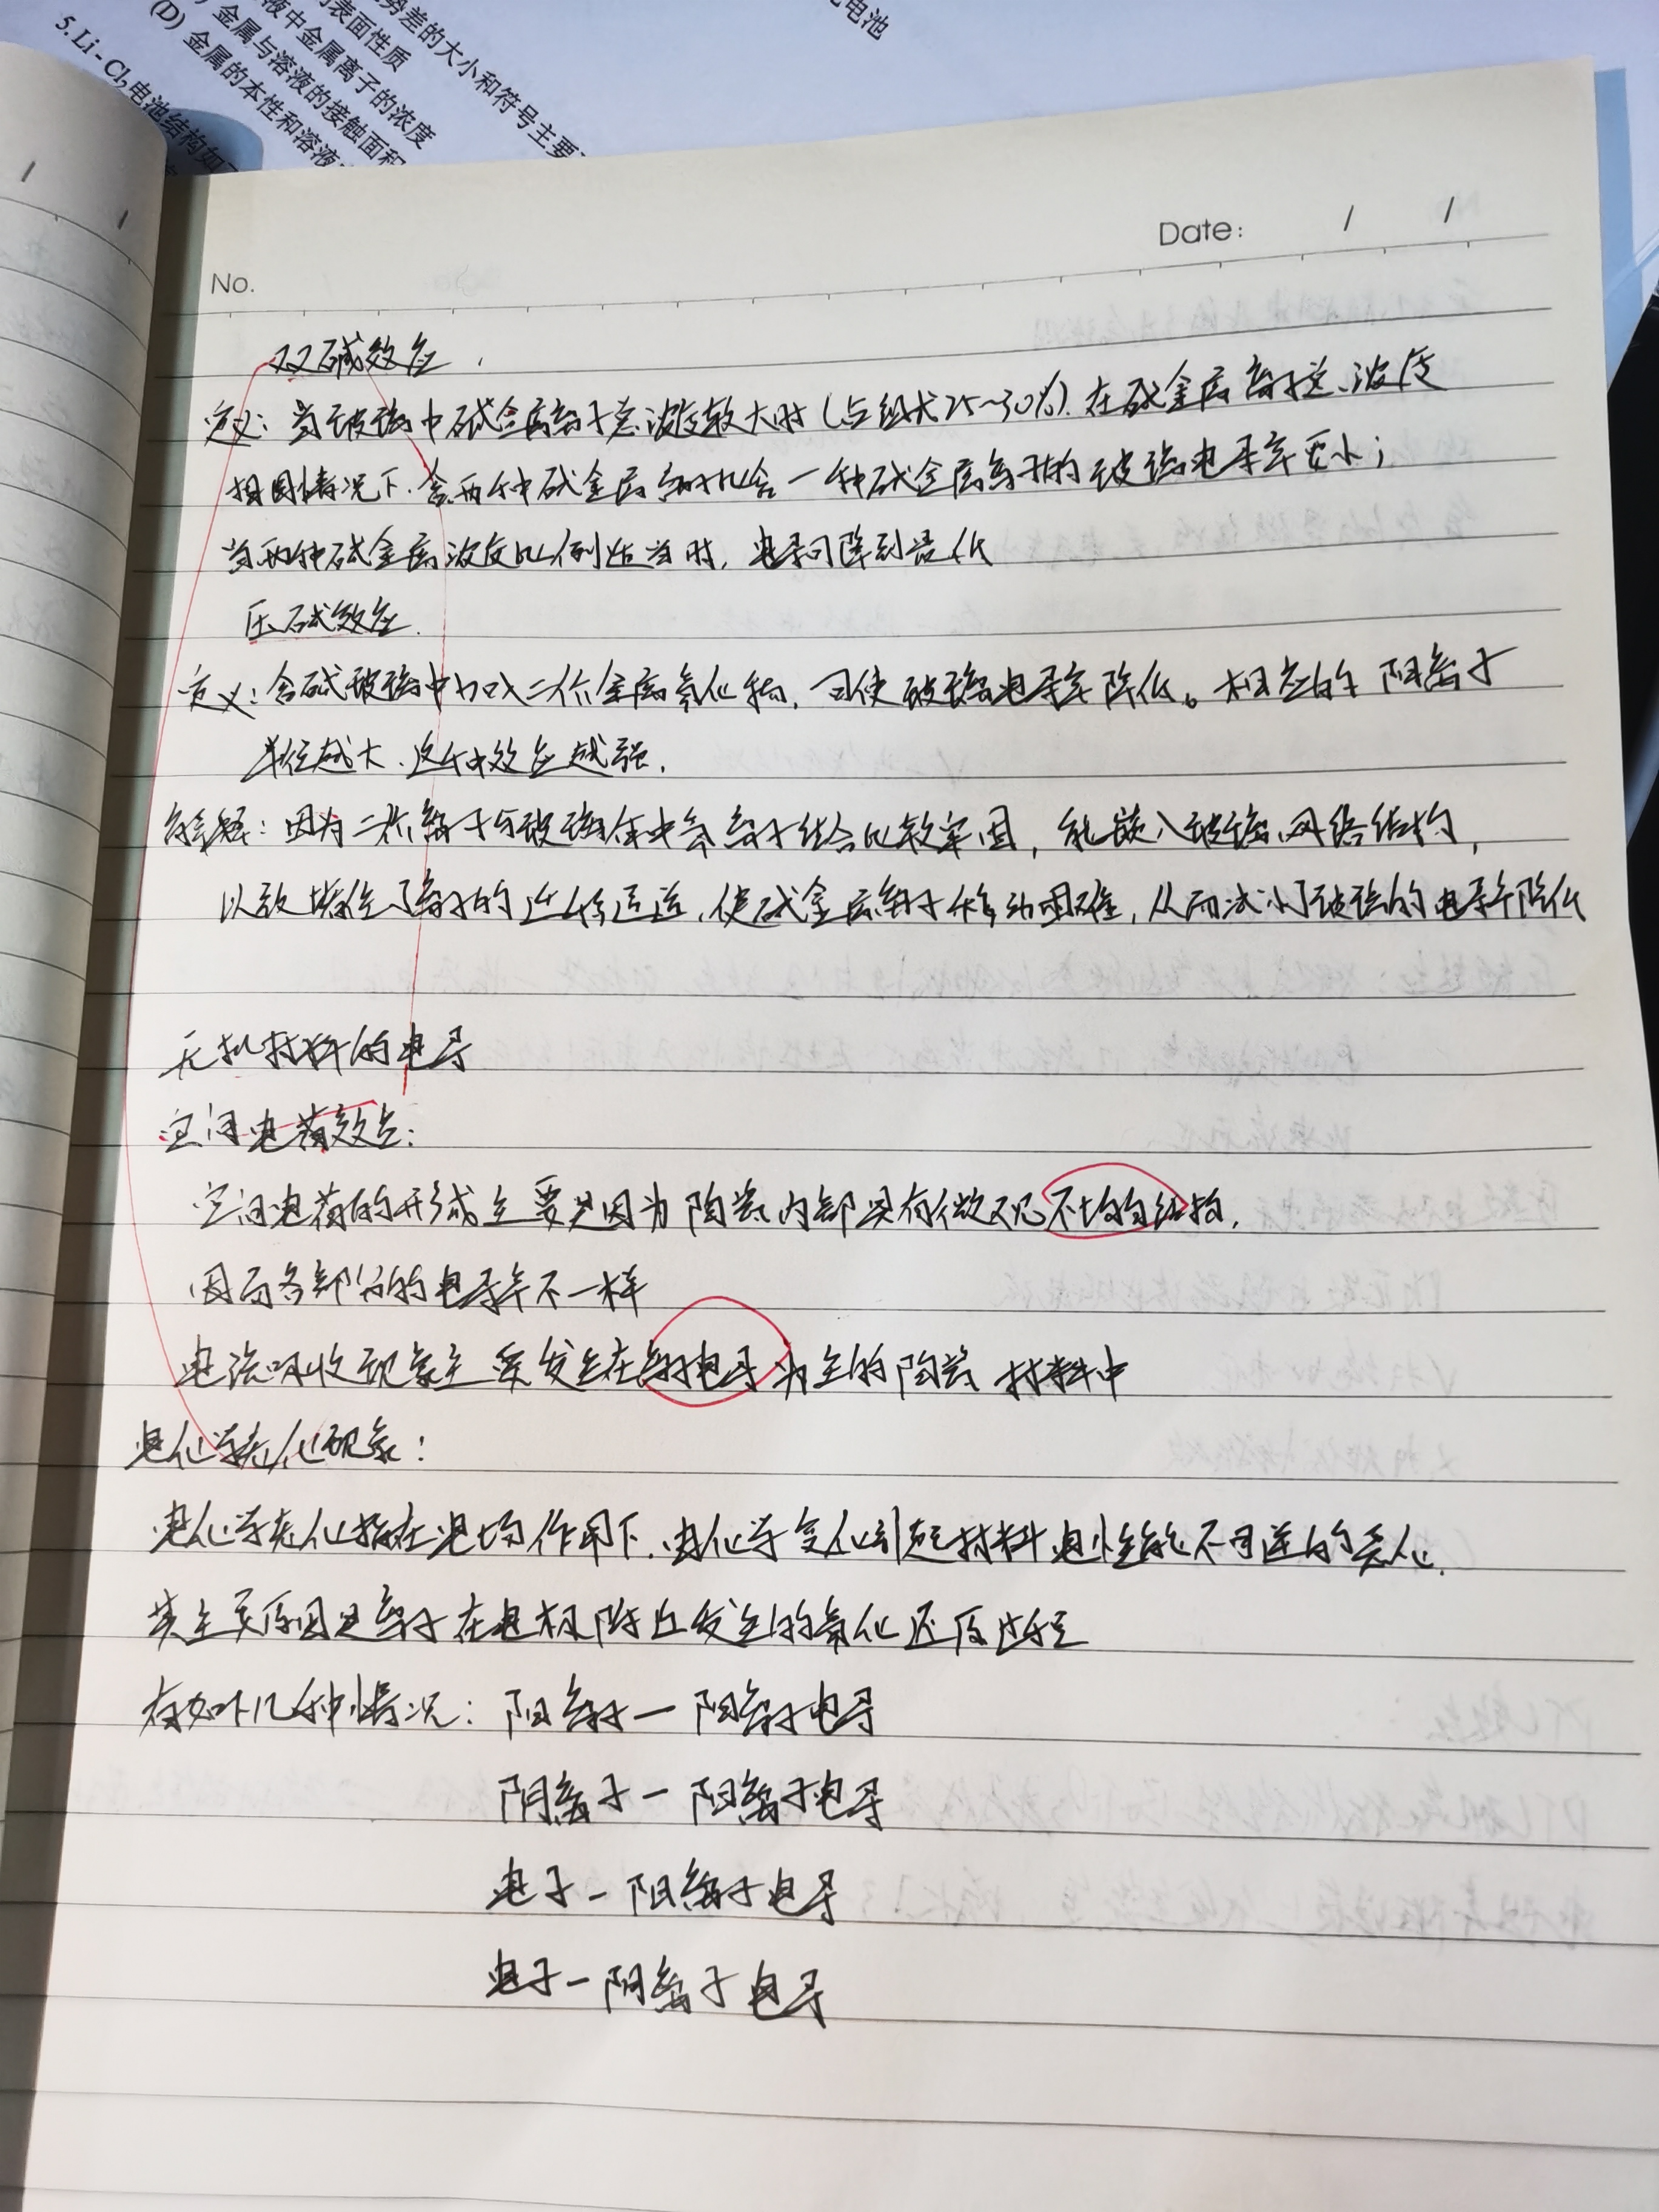 势差的大小和符号主要
的表面性质
液中金属离子的浓度
金属与溶液的接触面积
(D) 金属的本性和溶液
5. Li-Cl₂电池结构如下
电池
Date: / /
No.
双碱效应
定义: 当玻璃中碱金属离子总浓度较大时(占组成25~30%). 在碱金属离子总浓度
相同情况下. 含两种碱金属离子比含一种碱金属离子的玻璃电导率要小;
当两种碱金属浓度比例适当时, 电导可降到最低
压碱效应.
定义: 含碱玻璃中加入二价金属氧化物, 可使玻璃电导率降低。相应的阳离子
半径越大. 这种效应越强.
解释: 因为二价离子与玻璃体中氧离子结合比较牢固, 能嵌入玻璃网络结构,
以致堵住了离子的迁移通道, 使碱金属离子移动困难, 从而减小了玻璃的电导率降低
无机材料的电导
空间电荷效应:
空间电荷的形成主要是因为陶瓷内部具有微观不均匀结构,
因而各部分的电导率不一样
电流吸收现象主要发生在离子电导为主的陶瓷材料中
电化学老化现象:
电化学老化指在电场作用下. 电化学变化引起材料电性能不可逆的老化.
其主要原因是离子在电极附近发生的氧化还原过程
有如下几种情况: 阳离子—阳离子电导
阴离子—阳离子电导
电子—阳离子电导
电子—阴离子电导